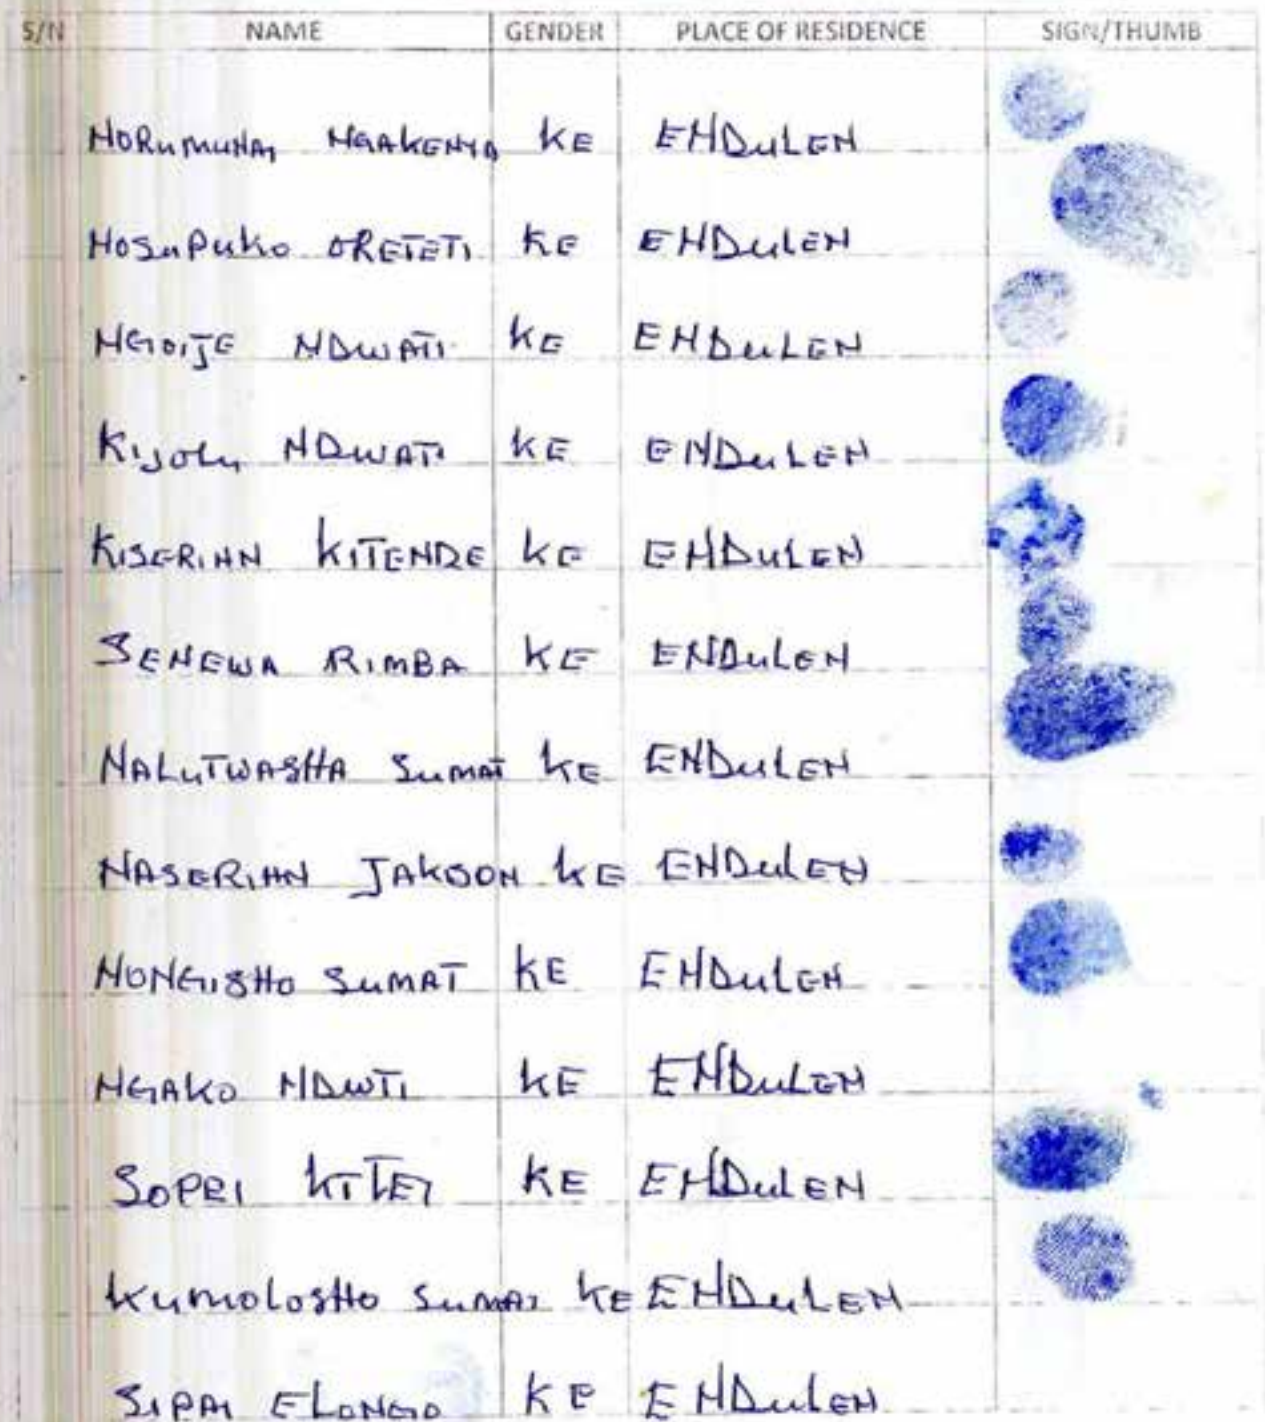 S/N NAME GENDER PLACE OF RESIDENCE SIGN/THUMB
NORUMUNAI NGAKENYA KE ENDULEN
NOSUPUKO ORETETI KE ENDULEN
NGOIJE NDWATI KE ENDULEN
KIJOLU NDWATI KE ENDULEN
KISERIAN KITENDE KE ENDULEN
SENEWA RIMBA KE ENDULEN
NALUTWASHA SUMAT KE ENDULEN
NASERIAN JAKSON KE ENDULEN
NONGISHO SUMAT KE ENDULEN
NGAKO NDWTI KE ENDULEN
SOPEI KITEI KE ENDULEN
KUMOLOSHO SUMAT KE ENDULEN
SIPAI ELONGO KE ENDULEN